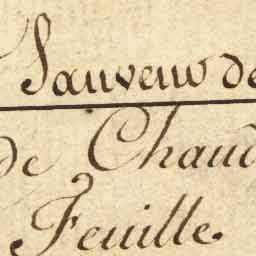 Sauveur de
de Chaud
Feuille.